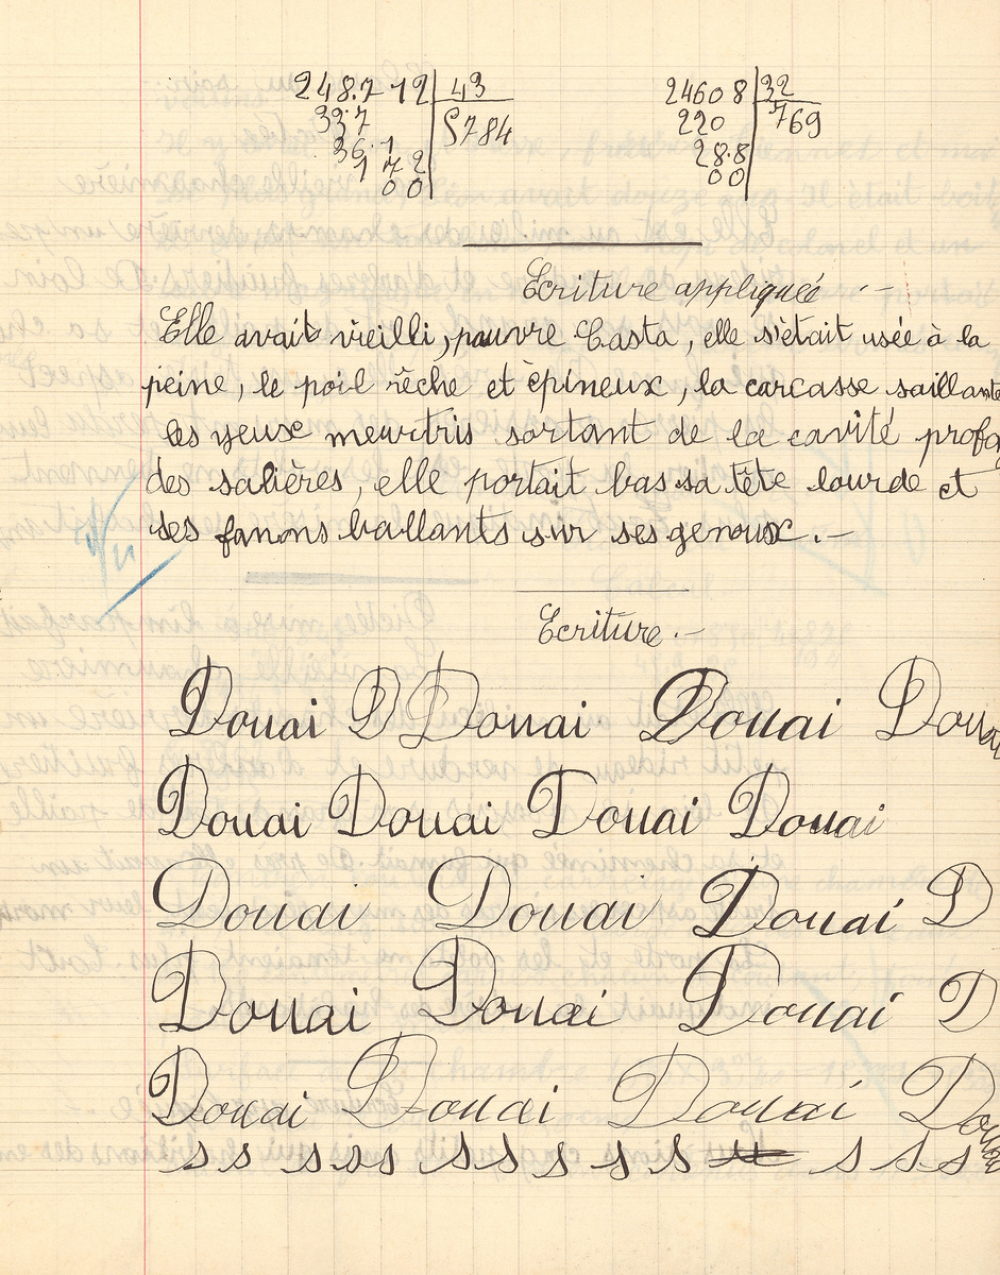 248.7 12 43 24608 32
33 7 5784 220 769
36.1 28.8
1 72 00
00
Ecriture appliquée .-
Elle avait vieilli, pauvre Casta, elle s'était usée à la
peine, le poil rêche et épineux, la carcasse saillante
les yeux meurtris sortant de la cavité profon
des salières, elle portait bas sa tête lourde et
ses fanons ballants sur ses genoux.-
Ecriture.-
Douai D Douai Douai Douai
Douai Douai Douai Douai
Douai Douai Douai D
Douai Douai Douai D
Douai Douai Douai Douai
s s s s s s s s s s s s s s